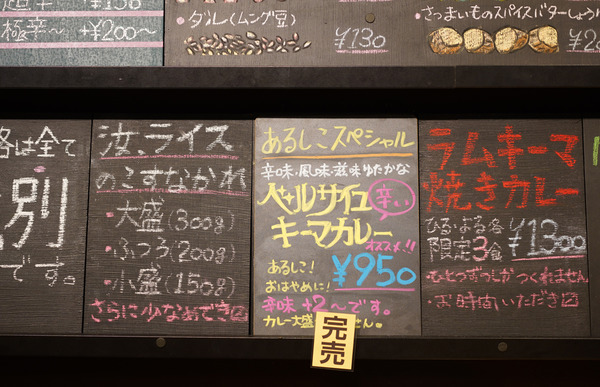 超辛 ¥150
極辛〜 +¥200〜
・ダル(ムング豆)
¥130
・さつまいものスパイスバターしょうゆ
¥2
格は全て
別
です。
汝、ライス
のこすなかれ
・大盛(300g)
・ふつう(200g)
・小盛(150g)
さらに少なめでき〼
あるしこスペシャル
辛味・風味・滋味ゆたかな
ペルサイユ
辛い
キーマカレー
オススメ!!
あるしこ!
おはやめに!
¥950
辛味 +2〜です。
カレー大盛
せん。
完売
ラムキーマ
焼きカレー
ひる・よる各
限定3食
¥1300
・ひとつずつしかつくれません
・お時間いただき〼